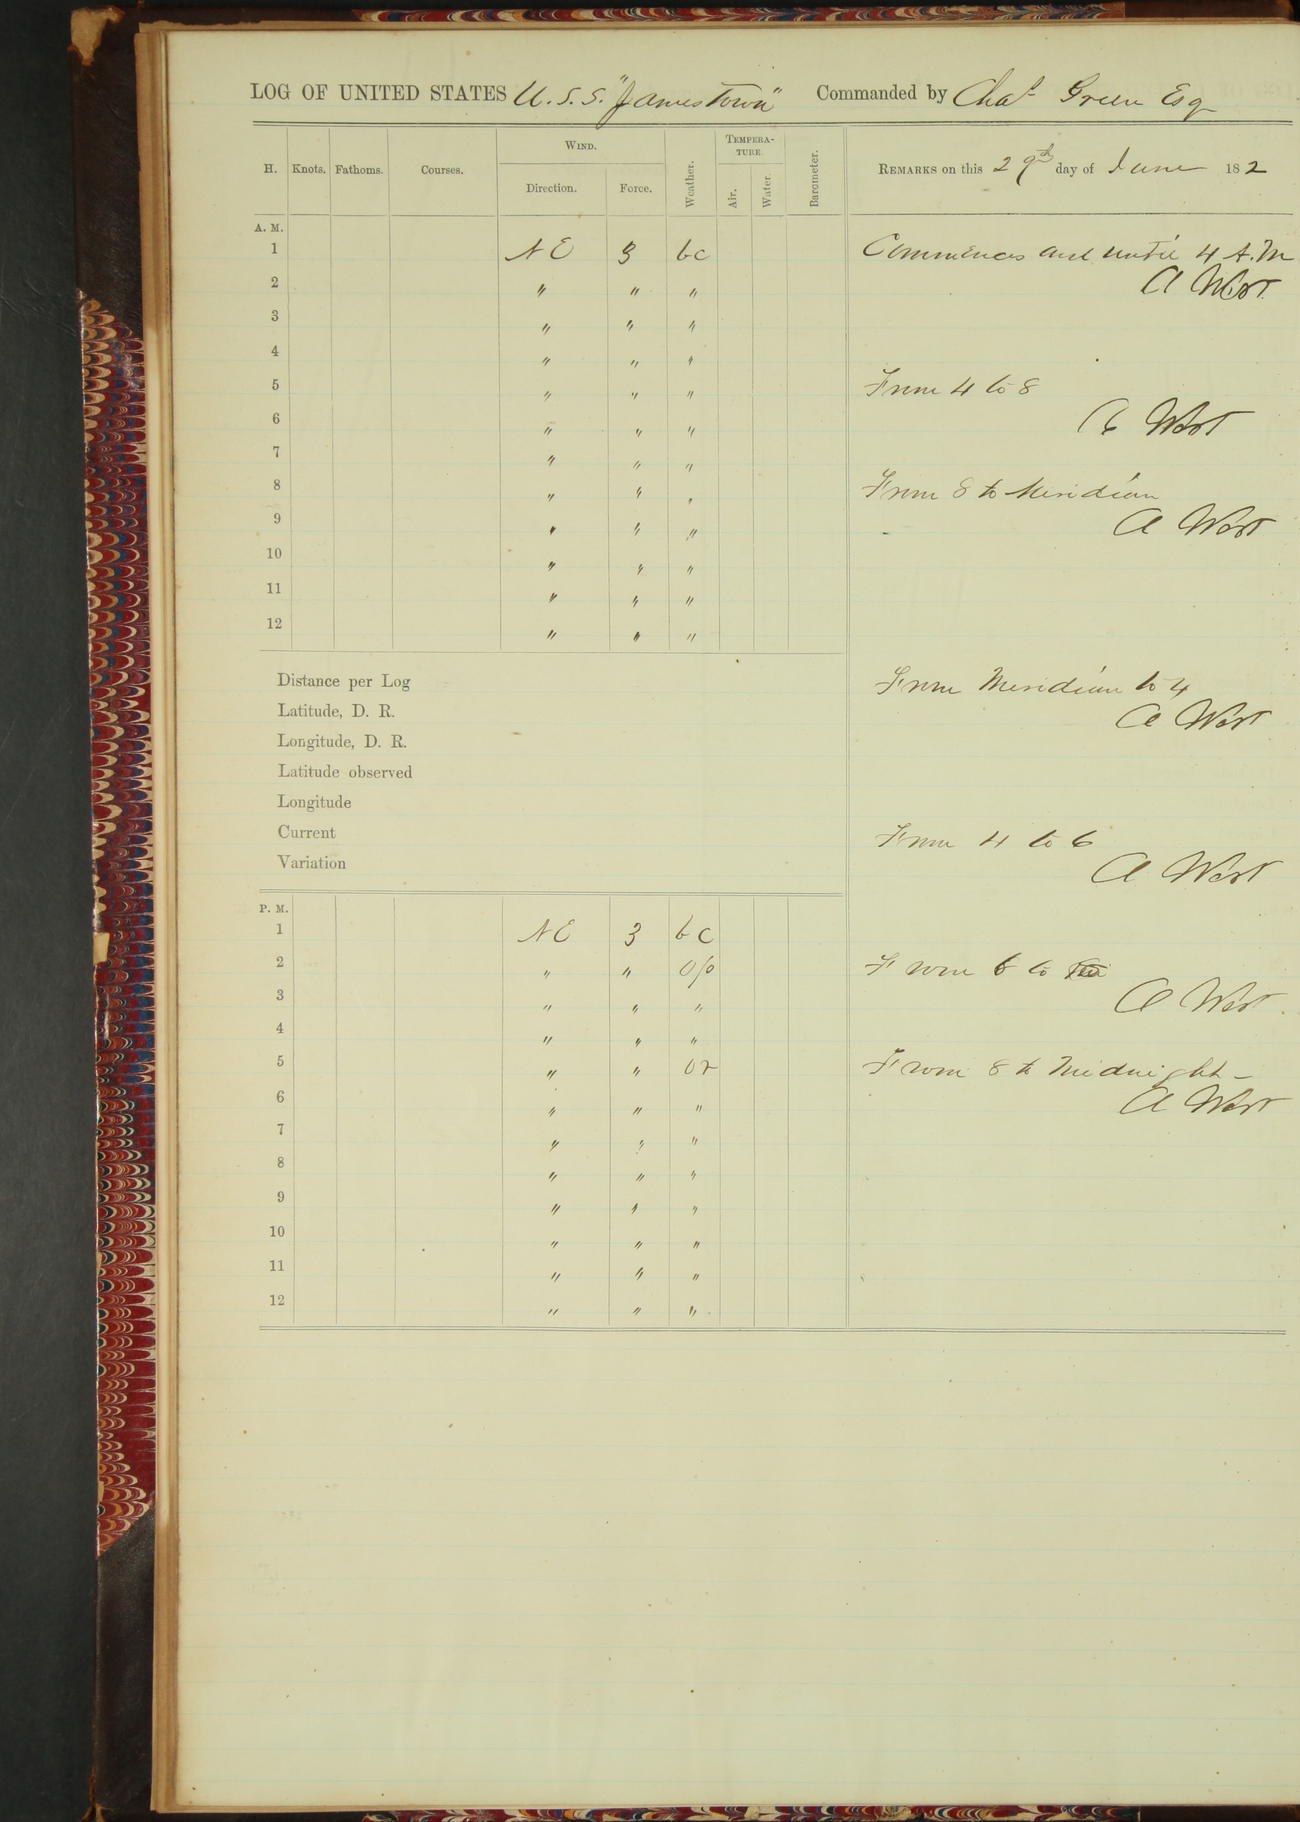 LOG OF UNITED STATES U. S. S. "Jamestown" Commanded by Chas Green Esq
H. Knots. Fathoms. Courses. WIND. Direction. Force. Weather. TEMPERATURE. Air. Water. Barometer. REMARKS on this 29th day of June 182
A. M.
1 NE 3 bc Commences and until 4 A.M
2 " " " A West
3 " " "
4 " " "
5 " " " From 4 to 8
6 " " " A West
7 " " "
8 " " " From 8 to Meridian
9 " " " A West
10 " " "
11 " " "
12 " " "
Distance per Log From Meridian to 4
Latitude, D. R. A West
Longitude, D. R.
Latitude observed
Longitude
Current From 4 to 6
Variation A West
P. M.
1 NE 3 bc
2 " " o/o From 6 to
3 " " " A West
4 " " "
5 " " or From 8 to Midnight -
6 " " " A West
7 " " "
8 " " "
9 " " "
10 " " "
11 " " "
12 " " "